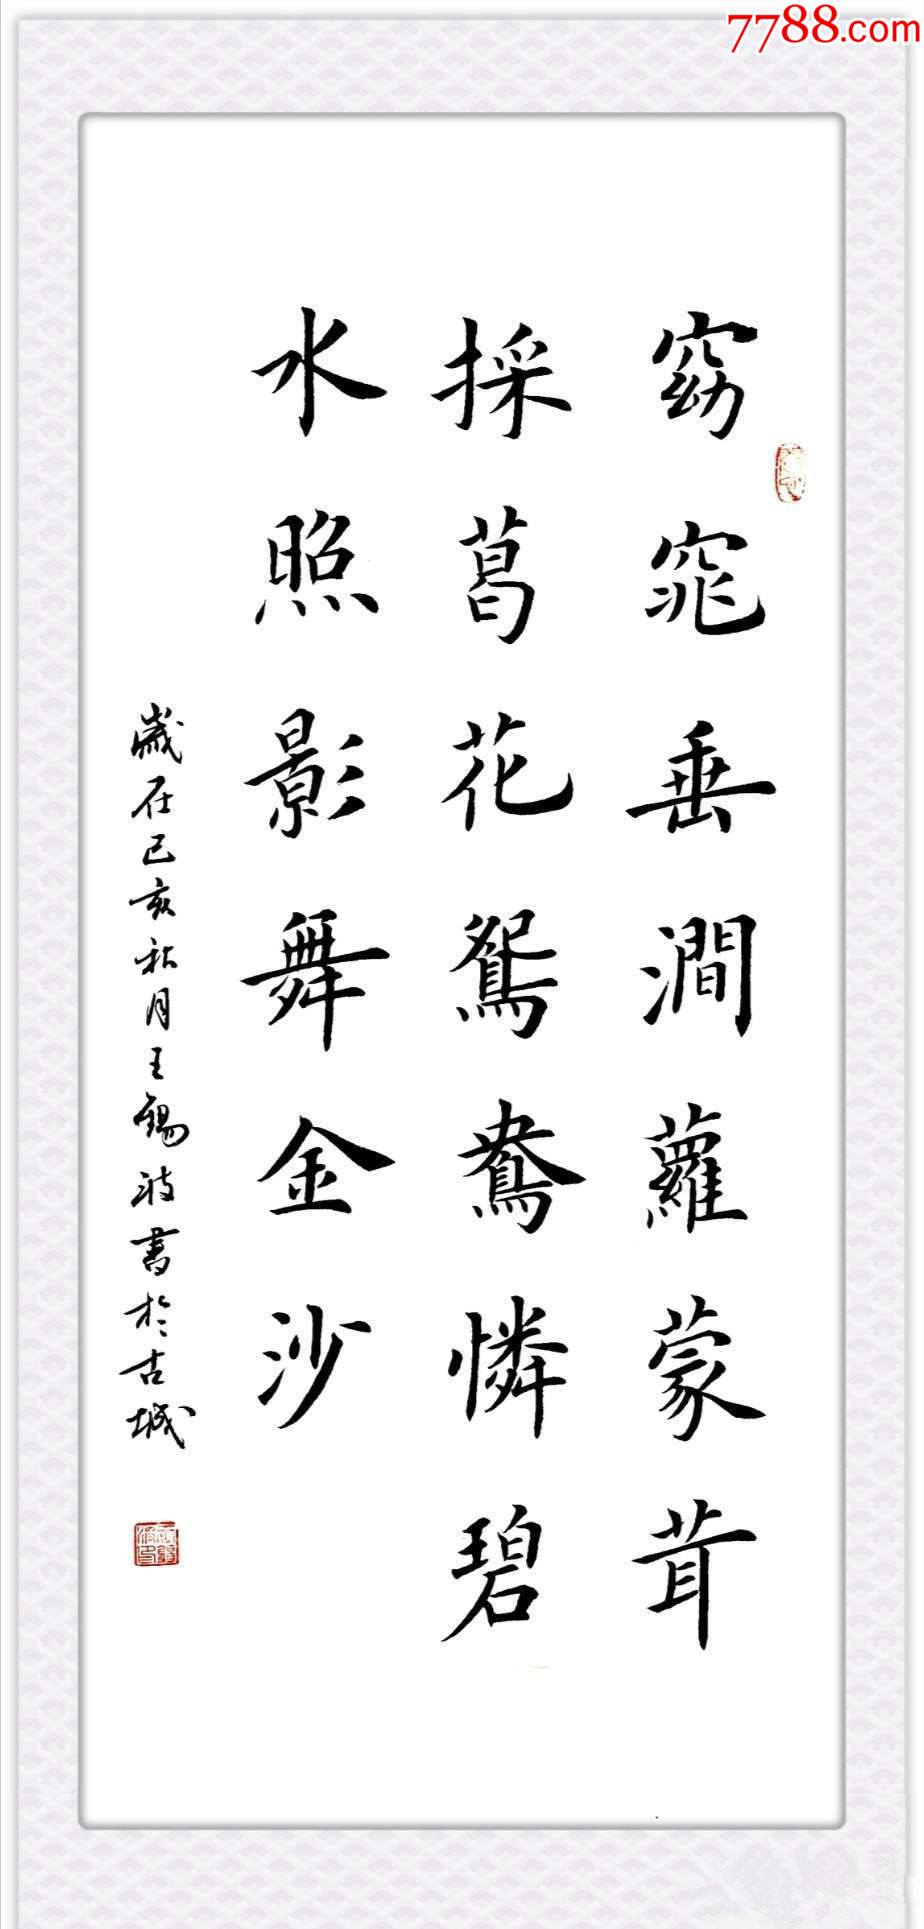 7788.com
窈窕垂澗蘿蒙茸
採葛花鴛鴦憐碧
水照影舞金沙
歲在己亥秋月王錫波書於古城